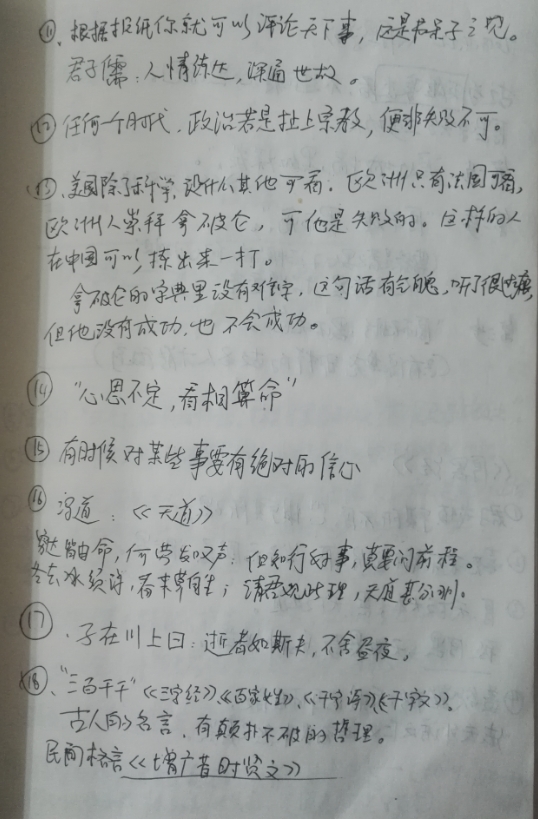 ⑪、根据报纸你就可以评论天下事，这是书呆子之见。
君子儒：人情练达，深通世故。
⑫ 任何一个时代，政治若是扯上宗教，便非失败不可。
⑬、美国除了科学，没什么其他可看，欧洲只有法国可看，
欧洲人崇拜拿破仑，可他是失败的。这样的人
在中国可以拣出来一打。
拿破仑的字典里没有难字，这句话有气魄，听了很过瘾，
但他没有成功，也不会成功。
⑭ “心思不定，看相算命”
⑮ 有时候对某些事要有绝对的信心
⑯ 冯道：《天道》
穷达皆由命，何劳发叹声；但知行好事，莫要问前程。
冬去冰须泮，春来草自生；请君观此理，天道甚分明。
⑰ .子在川上曰：逝者如斯夫，不舍昼夜。
⑱、“三百千千”《三字经》、《百家姓》、《千字诗》《千字文》。
古人的名言，有颠扑不破的哲理。
民间格言《增广昔时贤文》